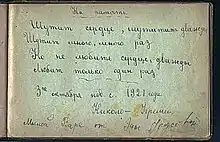 На память
Шутит сердце, шутит дважды
Шутит много, много раз
Но не любит сердце дважды
Любит только один раз
3го октября 1921 года
Николо-
Милой от